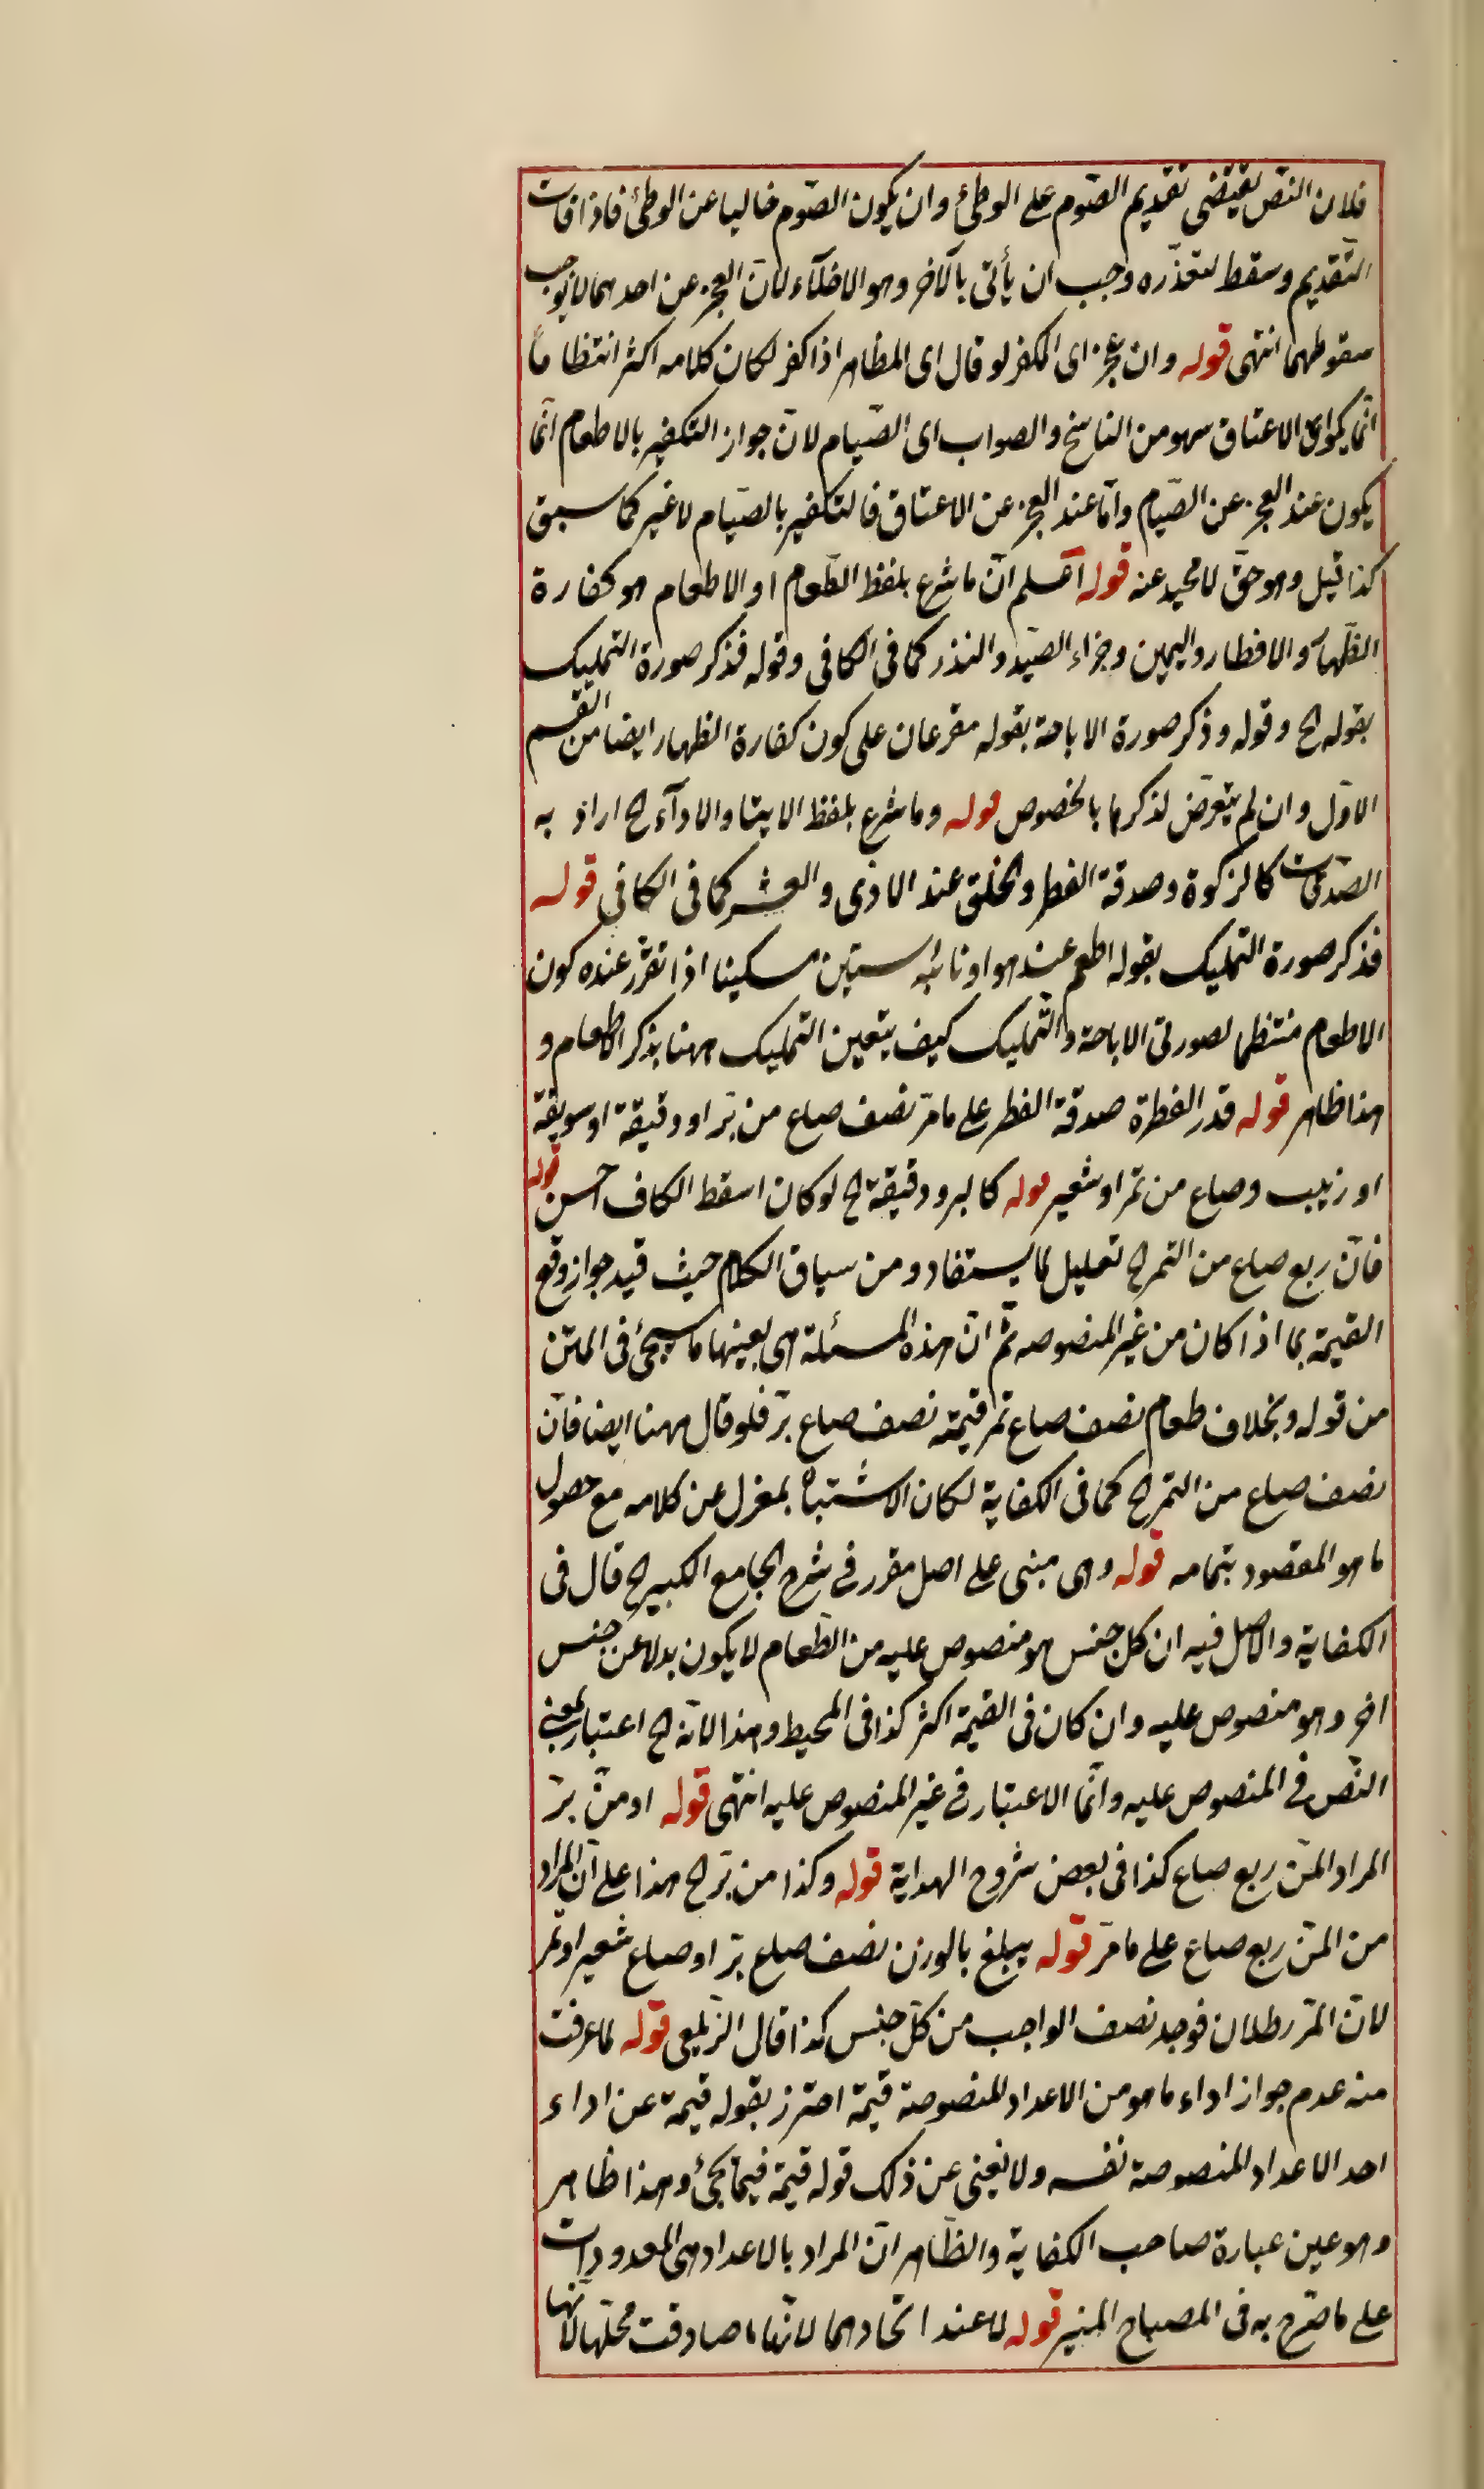 فلان النّص يقتضى تقديم الصّوم على الوطئ وان يكون الصّوم خاليا عن الوطئ فاذا فات
التّقديم وسقط لتعذّره وجب ان يأتى بالآخر وهو الاخلآء لانّ العجز عن احدهما لا يوجب
سقوطهما انتهى قوله وان عجز اى المكفر لو قال اى المظاهر اذا كفر لكان كلامه اكثر انتظاماً
انّما يكو اى الاعتاق سهو من الناسخ والصواب اى الصّيام لانّ جواز التكفير بالاطعام انّما
يكون عند العجز عن الصّيام وامّا عند العجز عن الاعتاق فالتكفير بالصّيام لا غير كما سبق
كذا قيل وهو حقّ لا محيد عنه قوله اعلم انّ ما شرع بلفظ الطّعام او الاطعام هو كفارة
الظهار والافطار واليمين وجزاء الصّيد والنذر كما فى الكافى وقوله فذكر صورة التمليك
بقوله الخ وقوله وذكر صورة الاباحة بقوله مفرعان على كون كفارة الظهار ايضا من القسم
الاوّل وان لم يتعرّض لذكرها بالخصوص قوله وما شرع بلفظ الايتا والادآء الخ اراد به
الصّدقات كالزكوة وصدقة الفطر والحلق عند الاذى والعشر كما فى الكافى قوله
فذكر صورة التمليك بقوله اطعم عنه هو او نائبه ستين مسكينا اذا تقرّر عنده كون
الاطعام منتظما لصورتى الاباحة والتّمليك كيف يتعين التمليك ههنا بذكر الاطعام و
هذا ظاهر قوله قدر الفطرة صدقة الفطر على ما مرّ نصف صاع من برّ او دقيقة او سويقة
او زبيب وصاع من تمر او شعير قوله كالبر ودقيقة الخ لو كان اسقط الكاف احسن قوله
فانّ ربع صاع من التمر الخ تعليل لما يستفاد ومن سياق الكلام حيث قيد جواز وقع
القيمة بما اذا كان من غير المنصوصه ثمّ انّ هذه المسئلة هى بعينها ما سيجئ فى المتن
من قوله وبخلاف طعام نصف صاع تمر قيمته نصف صاع برّ فلو قال ههنا ايضا فانّ
نصف صاع من التمر الخ كما فى الكفاية لكان الاشتباه بمعزل عن كلامه مع حصول
ما هو المقصود بتمامه قوله وهى مبنى على اصل مقرر فى شرح الجامع الكبير الخ قال فى
الكفاية والاصل فيه ان كل جنس هو منصوص عليه من الطّعام لا يكون بدلا عن جنس
اخر وهو منصوص عليه وان كان فى القيمة اكثر كذا فى المحيط وهذا لانّه الخ اعتبار لمعنى
النّص فى المنصوص عليه وانّما الاعتبار فى غير المنصوص عليه انتهى قوله او منّ برّ
المراد المنّ ربع صاع كذا فى بعض شروح الهداية قوله وكذا من برّ الخ هذا على انّ المراد
من المنّ ربع صاع على ما مرّ قوله يبلغ بالوزن نصف صاع برّ او صاع شعير او تمر
لانّ المنّ رطلان فوجد نصف الواجب من كلّ جنس كذا قال الزّيلعى قوله لما عرفت
منه عدم جواز اداء ما هو من الاعداد المنصوصة قيمة احترز بقوله قيمة عن اداء
احد الاعداد المنصوصة نفسه ولا يغنى عن ذلك قوله قيمة فيما يجئ وهذا ظاهر
وهو عين عبارة صاحب الكفاية والظّاهر انّ المراد بالاعداد هى المعدودات
على ما صّرح به فى المصباح المنير قوله لا عند اتحادهما لانّها ما صادفت محلّها لانّها